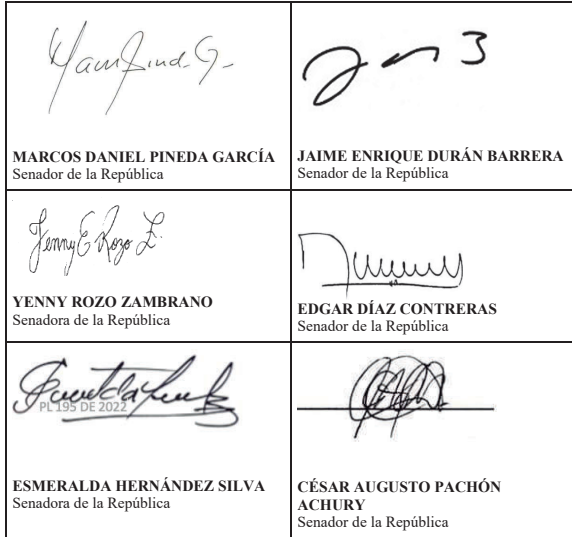 MARCOS DANIEL PINEDA GARCÍA
Senador de la República
JAIME ENRIQUE DURÁN BARRERA
Senador de la República
Yenny E Rozo Z.
YENNY ROZO ZAMBRANO
Senadora de la República
EDGAR DÍAZ CONTRERAS
Senador de la República
PL 195 DE 2022
ESMERALDA HERNÁNDEZ SILVA
Senadora de la República
CÉSAR AUGUSTO PACHÓN
ACHURY
Senador de la República